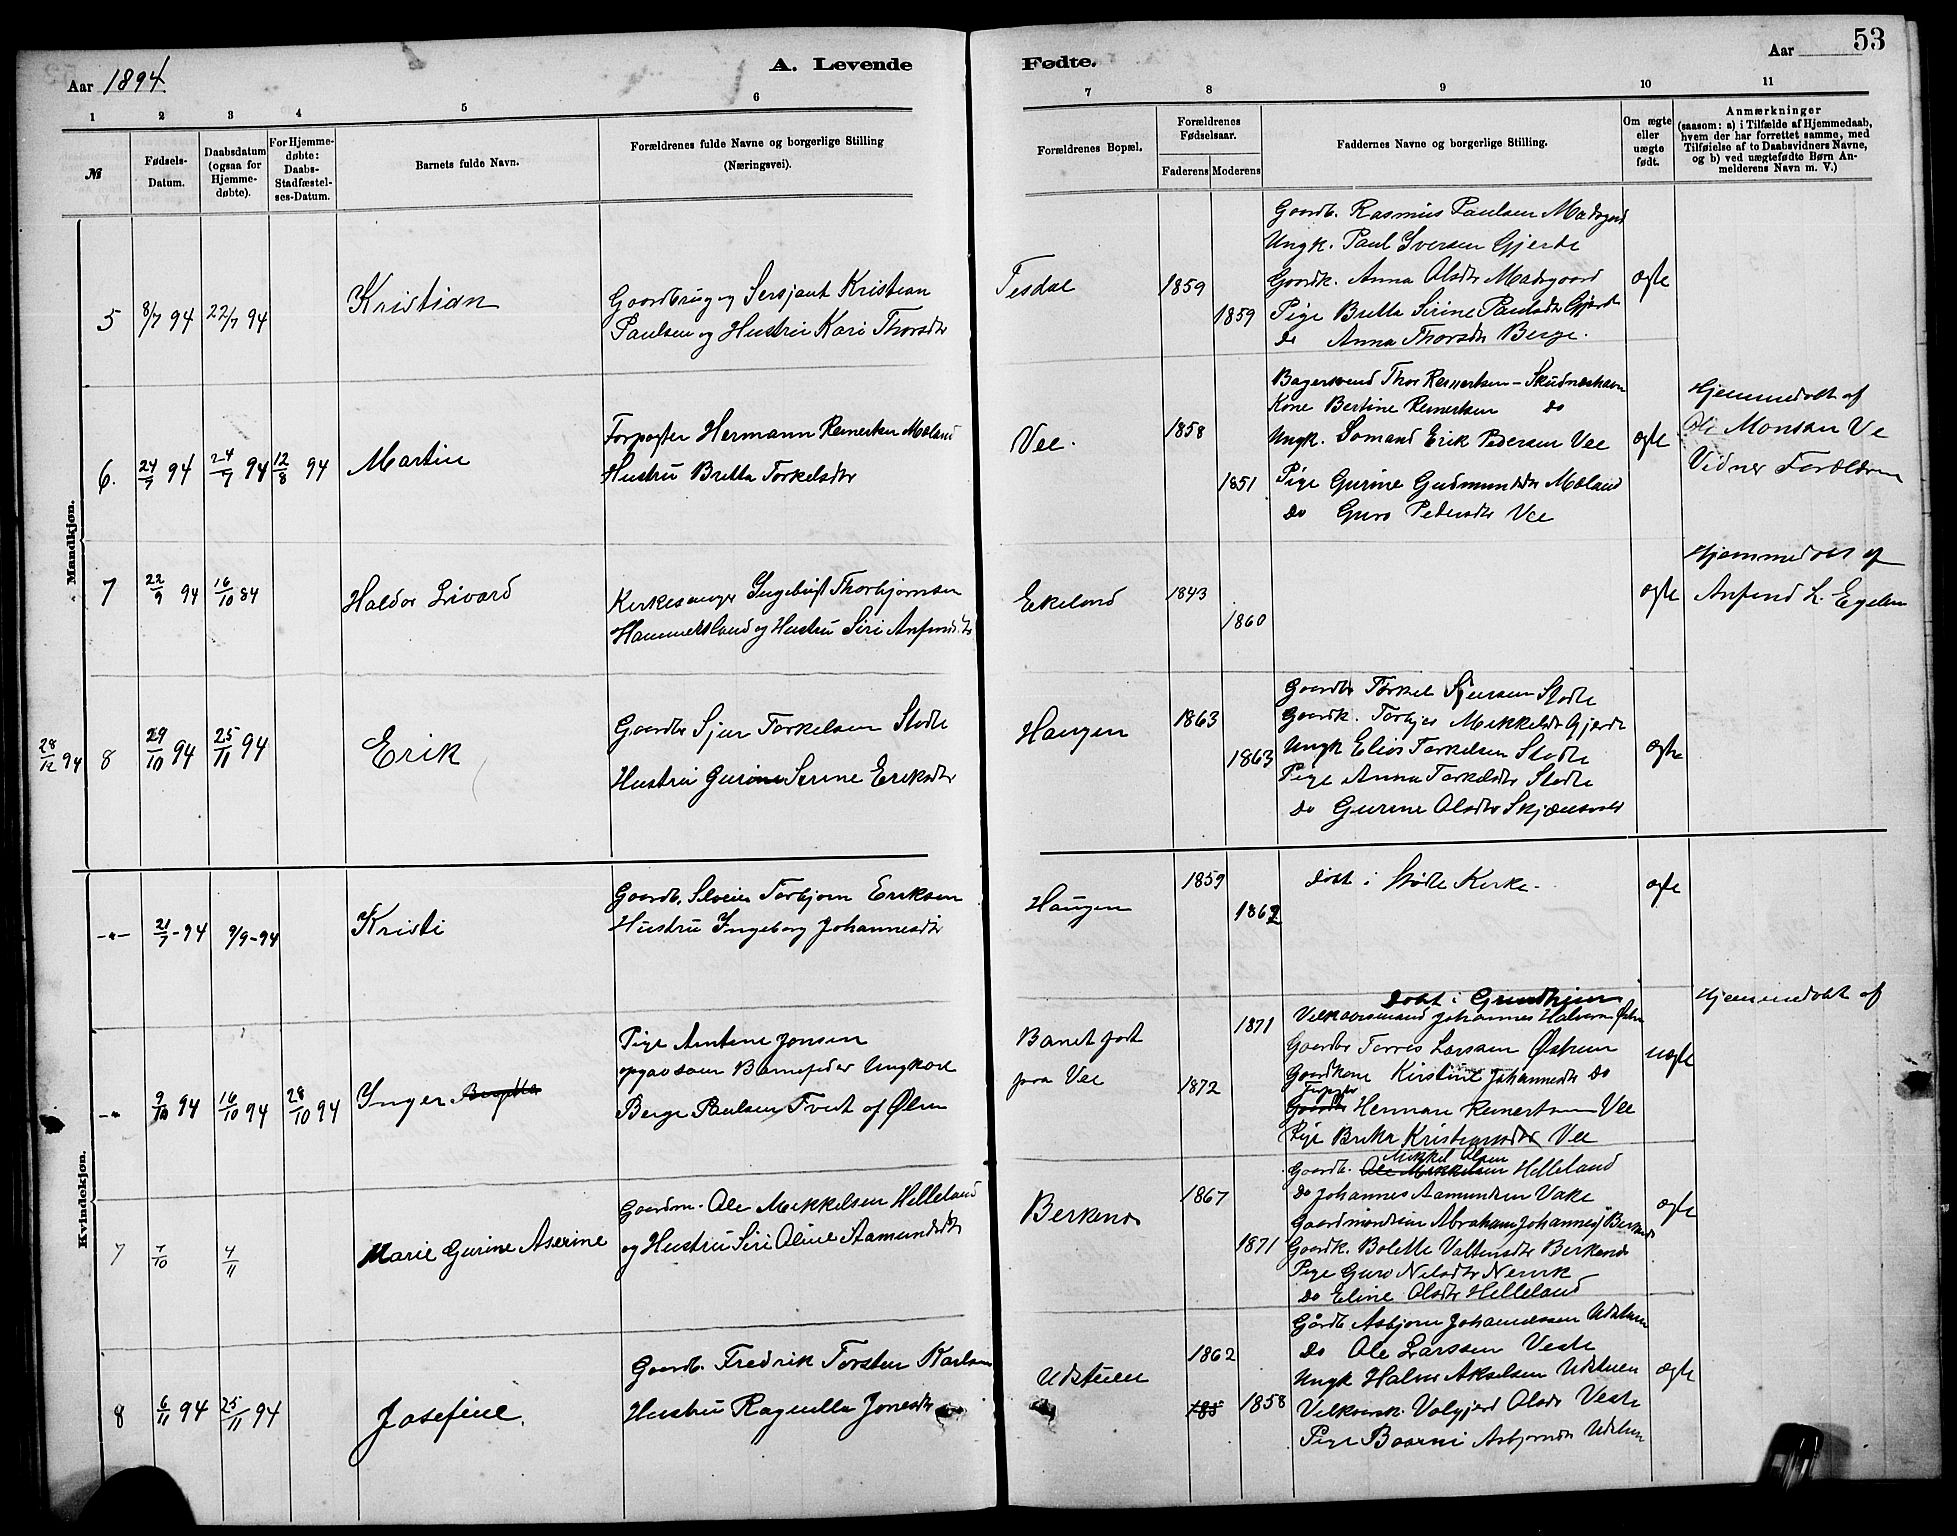 Aar 1894
A. Levende
Fødte.
Aar
53
1 2 3 4 5 6 7 8 9 10 11
№
Fødsels-
Datum.
Daabsdatum
(ogsaa for
Hjemme-
døbte).
For Hjemme-
døbte:
Daabs-
Stadfæstel-
ses-Datum.
Barnets fulde Navn.
Forældrenes fulde Navne og borgerlige Stilling
(Næringsvei).
Forældrenes Bopæl.
Forældrenes
Fødselsaar.
Faderens Moderens
Faddernes Navne og borgerlige Stilling.
Om ægte
eller
uægte
født.
Anmærkninger
(saasom: a) i Tilfælde af Hjemmedaab,
hvem der har forrettet samme, med
Tilføielse af to Daabsvidners Navne,
og b) ved uægtefødte Børn An-
melderens Navn m. V.)
Mandkjøn.
5 8/7 94 22/7 94 Kristian
Gaardbrug og Sersjant Kristian
Paulsen og Hustru Kari Thorsdtr
Tesdal
1859
1859
Gaardb. Rasmus Paulsen Madsgaard
Ungk. Paul Iversen Gjerde
Gaardk. Anna Olsdtr Madsgaard
Pige Britta Sirine Paulsdtr Gjerde
Do Anna Thorsdtr Berge.
ægte
6. 24/7 94 24/7 94 12/8 94 Martin
Forpagter Hermann Reinertsen Mæland
Hustru Britta Torkelsdtr
Vee.
1858
1851
Bagersvend Thor Reinertsen - Skudneshavn
Kone Bertine Reinertsen do
Ungk. Sømand Erik Pedersen Vee
Pige Gurine Gudmundsdtr Mæland
Do Guro Pedersdtr Vee
ægte
Hjemmedøbt af
Ole Monsen Ve
Vidner Forældrene
7 22/9 94 16/10 84 Haldor Sivard
Kirkesanger Ingebrigt Thorbjørnsen
Hammersland og Hustru Siri Anfinnsdtr
Ekeland
1843
1860
ægte
Hjemmedøbt af
Anfind L. Egeland
28/12 94 8 29/10 94 25/11 94 Erik
Gaardbr Sjur Torkelsen Stødle
Hustru Gurine Serine Eriksdtr
Haugen
1863
1863
Gaardbr Torkel Sjursen Stødle
Gaardk. Torbjør Mikkelsdtr Gjerde
Ungk Elias Torkelsen Stødle
Pige Anna Torkelsdtr Stødle
Do Gurine Olsdtr Skjænsvold
ægte
Kvindekjøn.
-"- 21/7-94 9/9-94 Kristi
Gaardb. Torbjørn Eriksen
Hustru Ingeborg Johannesdtr
Haugen
1859
1862
Døbt i Stødle Kirke.
ægte
-" 9/10 94 16/10 94 28/10 94 Inger
Pige Amtine Jonsen
opgav som Barnefader Ungkarl
Berge Paulsen Tvedt af Ølen
Barnet født
paa Vee
1871
1872
Døbt i Grindheim
Johannes Halvorsen Ølen
Gaardbr Torres Larsen Østrem
Gaardkone Kirstine Johannesdtr Do
Forpagter
Gaardbr Herman Reinertsen Vee
Pige Britta Kristiansdtr Vee
uægte
Hjemmedøbt af
7 7/10 4/11 Marie Gurine Aserine
Gaardm. Ole Mikkelsen Helleland
og Hustru Siri Oline Aamundsdtr
Berkenes
1867
1871
Mikkel Olsen
Gaardb. Ole Mikkelsen Helleland
Do Johannes Aamundsen Vake
Gaardmandssøn Abraham Johannes Berkenes
Gaardk. Bolette Valtinsdtr Berkenes
Pige Guro Nilsdtr Nervik
Do Eline Olsdtr Helleland
ægte
8 6/11 94 25/11 94 Josefine.
Gaardb. Fredrik Torsten Karlsen
Hustru Ragnilla Jonesdtr
Udstuen
1862
185
1858
Gårdb Asbjørn Johannessen Udstuen
Do Ole Larssen Veste
Ungk Halvor Akselsen Udstuen
Valgjerd Olsdr Veste
Pige Baarni Asbjørnsdtr Udstuen
ægte